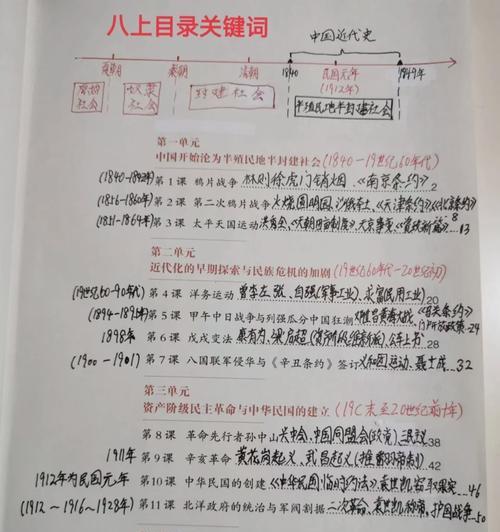 八上目录关键词
中国近代史
夏朝 秦朝 清朝 1840 民国元年 1949年
(1912年)
原始社会 奴隶社会 封建社会 半殖民地半封建社会
第一单元
中国开始沦为半殖民地半封建社会(1840-19世纪60年代)
(1840-1842年) 第 1 课 鸦片战争 林则徐虎门销烟、《南京条约》2
(1856-1860年) 第 2 课 第二次鸦片战争 火烧圆明园、沙俄占土、《天津条约》《北京条约》8
(1851-1864年) 第 3 课 太平天国运动 洪秀全、《天朝田亩制度》天京事变、《资政新篇》13
第二单元
近代化的早期探索与民族危机的加剧(19世纪60年代-20世纪初)
(19世纪60-90年代) 第 4 课 洋务运动 曾李左张、自强(军事工业)、求富(民用工业)20
(1894-1895年) 第 5 课 甲午中日战争与列强瓜分中国狂潮 黄海大战、《马关条约》门户开放政策 24
1898年 第 6 课 戊戌变法 康有为、梁启超(资产阶级维新派)、公车上书 28
(1900-1901) 第 7 课 八国联军侵华与《辛丑条约》签订 义和团运动、聂士成 32
第三单元
资产阶级民主革命与中华民国的建立(19C末至20世纪前十年)
第 8 课 革命先行者孙中山 兴中会、中国同盟会(政党)三民主义 38
1911年 第 9 课 辛亥革命 黄花岗起义、武昌起义(推翻帝制)42
1912年为民国元年 第 10 课 中华民国的创建《中华民国临时约法》袁世凯窃取果实 46
(1912~1916~1928年) 第 11 课 北洋政府的统治与军阀割据 二次革命、袁世凯称帝、护国战争 50